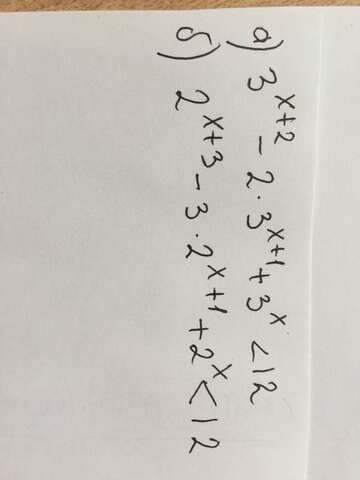 а) 3^{x+2} - 2·3^{x+1} + 3^x < 12
б) 2^{x+3} - 3·2^{x+1} + 2^x < 12